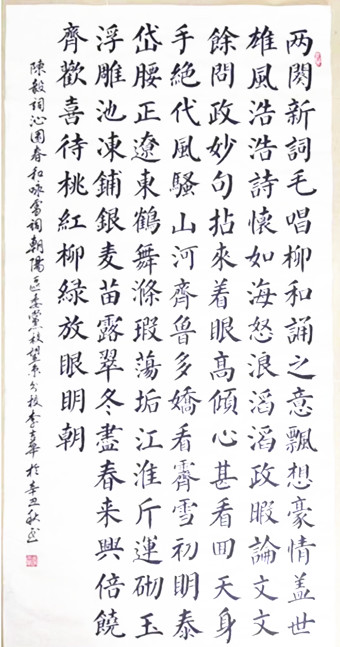 两闋新詞毛唱柳和誦之意飄想豪情盖世
雄風浩浩詩懷如海怒浪滔滔政暇論文文
餘問政妙句拈來着眼高傾心甚看囬天身
手絶代風騷山河齊魯多嬌看霽雪初眀泰
岱腰正遼東鶴舞滌瑕蕩垢江淮斤運砌玉
浮雕池凍鋪銀麦苗露翠冬盡春来興倍饒
齊歡喜待桃紅柳緑放眼眀朝
陳毅詞沁園春和咏雪詞朝陽區委黨校望京分校李華於辛丑秋